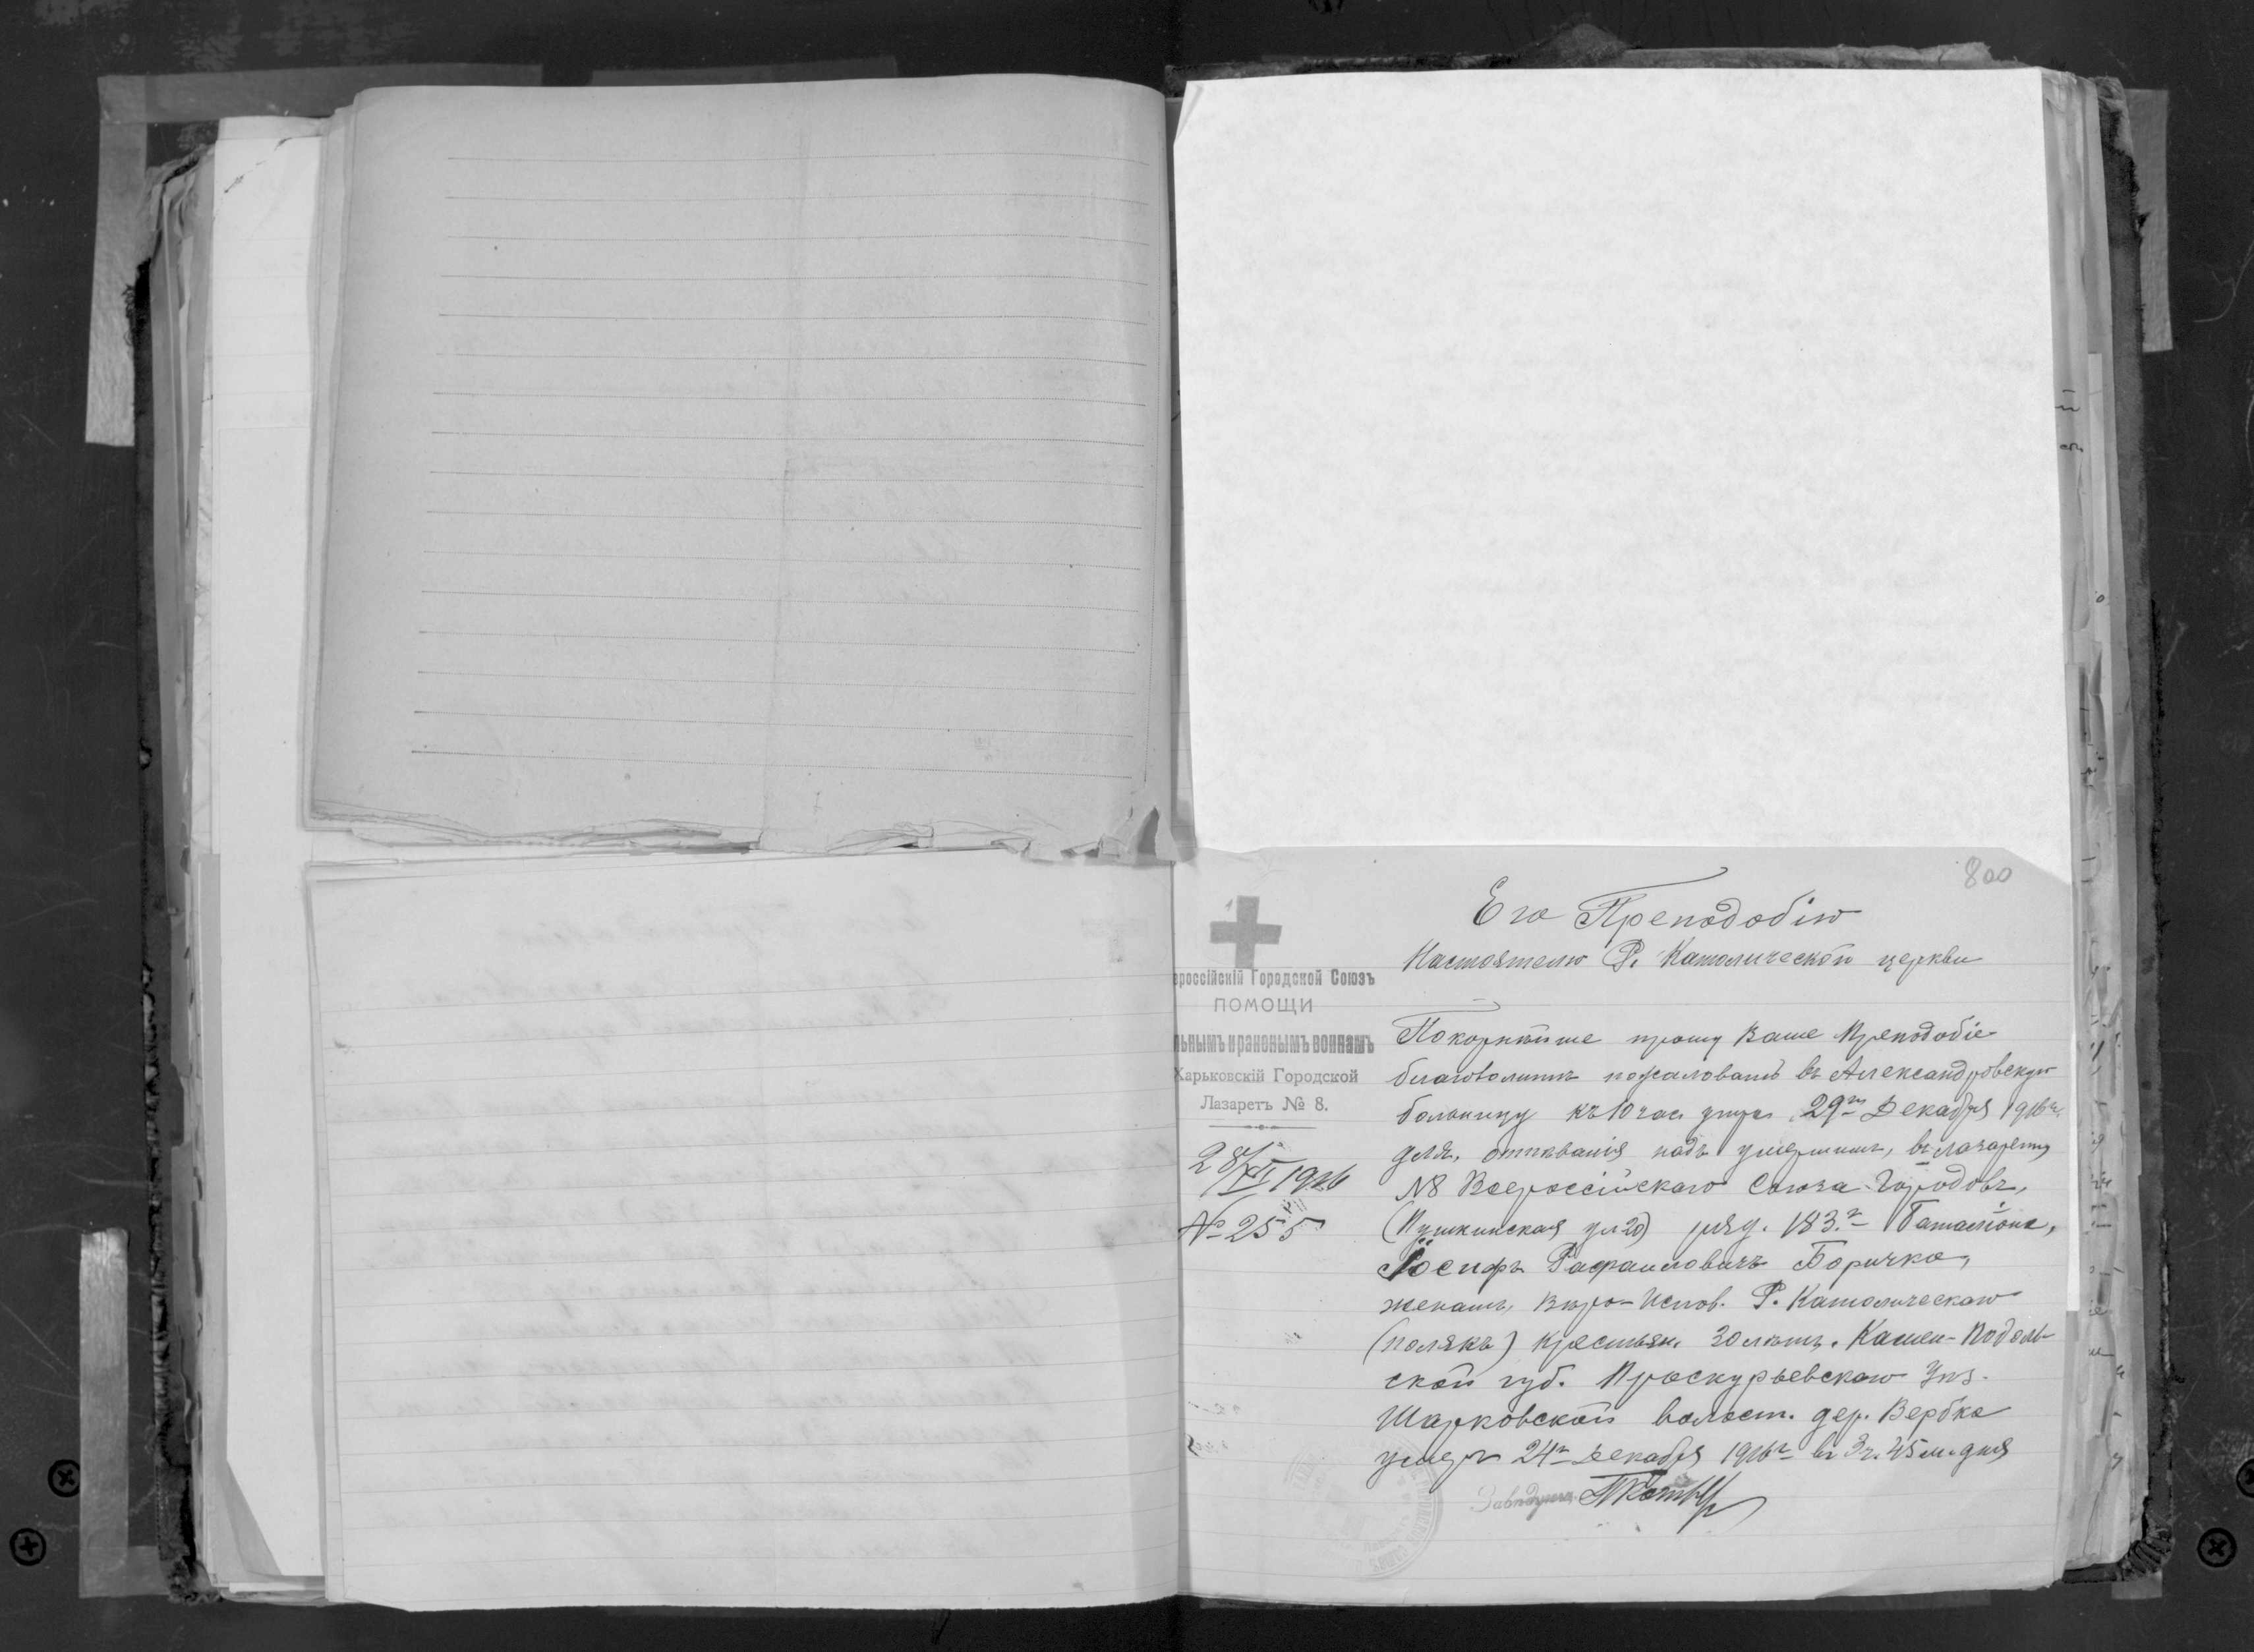 800
Его Преподобію
Настоятелю Р. Католической церкви
ероссійскій Городской Союзъ
ПОМОЩИ
льнымъ и раненымъ воинамъ
Харьковскій Городской
Лазаретъ № 8.
28/XII 1916
№ 255
Покорнѣйше прошу Ваше Преподобіе
благоволить пожаловать въ Александровскую
больницу къ 10 час утра 29го Декабря 1916 г.
для, отпѣванія надъ умершимъ, въ лазаретѣ
№8 Всероссійскаго Союза Городовъ,
(Пушкинская ул 20) ряд. 183.г Баталіона,
Іосифъ Рафаиловичъ Боричко,
женатъ, Вѣро-Испов. Р. Католическаго
(полякъ) крестьян. 30 лѣтъ. Камен-Подоль-
ской губ. Проскурьевскаго Уѣз.
Шарковской волост. дер. Вербка
умеръ 24го Декабря 1916 г. въ 3 ч. 45 м. дня
Завѣдующ.